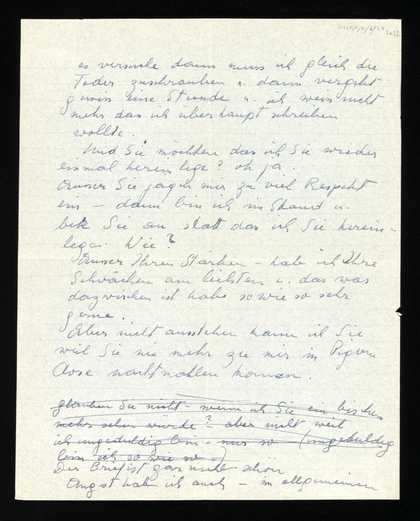 es versuche dann muss ich gleich die
Feder zuschrauben u. dann vergeht
gewiss eine Stunde u. ich weiss nicht
mehr das ich überhaupt schreiben
wollte.
Und Sie möchten das ich Sie wieder
einmal herein lege? oh ja.
Ausser Sie jagen mir zu viel Respekt
ein – dann bin ich im Stand u.
bete Sie an statt das ich Sie herein-
lege. Wie?
Ausser Ihren Stärken – hab ich Ihre
Schwächen am liebsten u. das was
dazwischen ist habe so wie so sehr
gerne.
Aber nicht ausstehen kann ich Sie
weil Sie nie mehr zu mir in Pigeon
nachtmahlen kommen.
glauben Sie nicht – wenn ich Sie ein bischen
sehen würde? aber nicht weil
ich ungeduldig bin – nur so (ungeduldig
bin ich so wie so)
Der Brief ist gar nicht schön
Angst hab ich auch – im allgemeinen